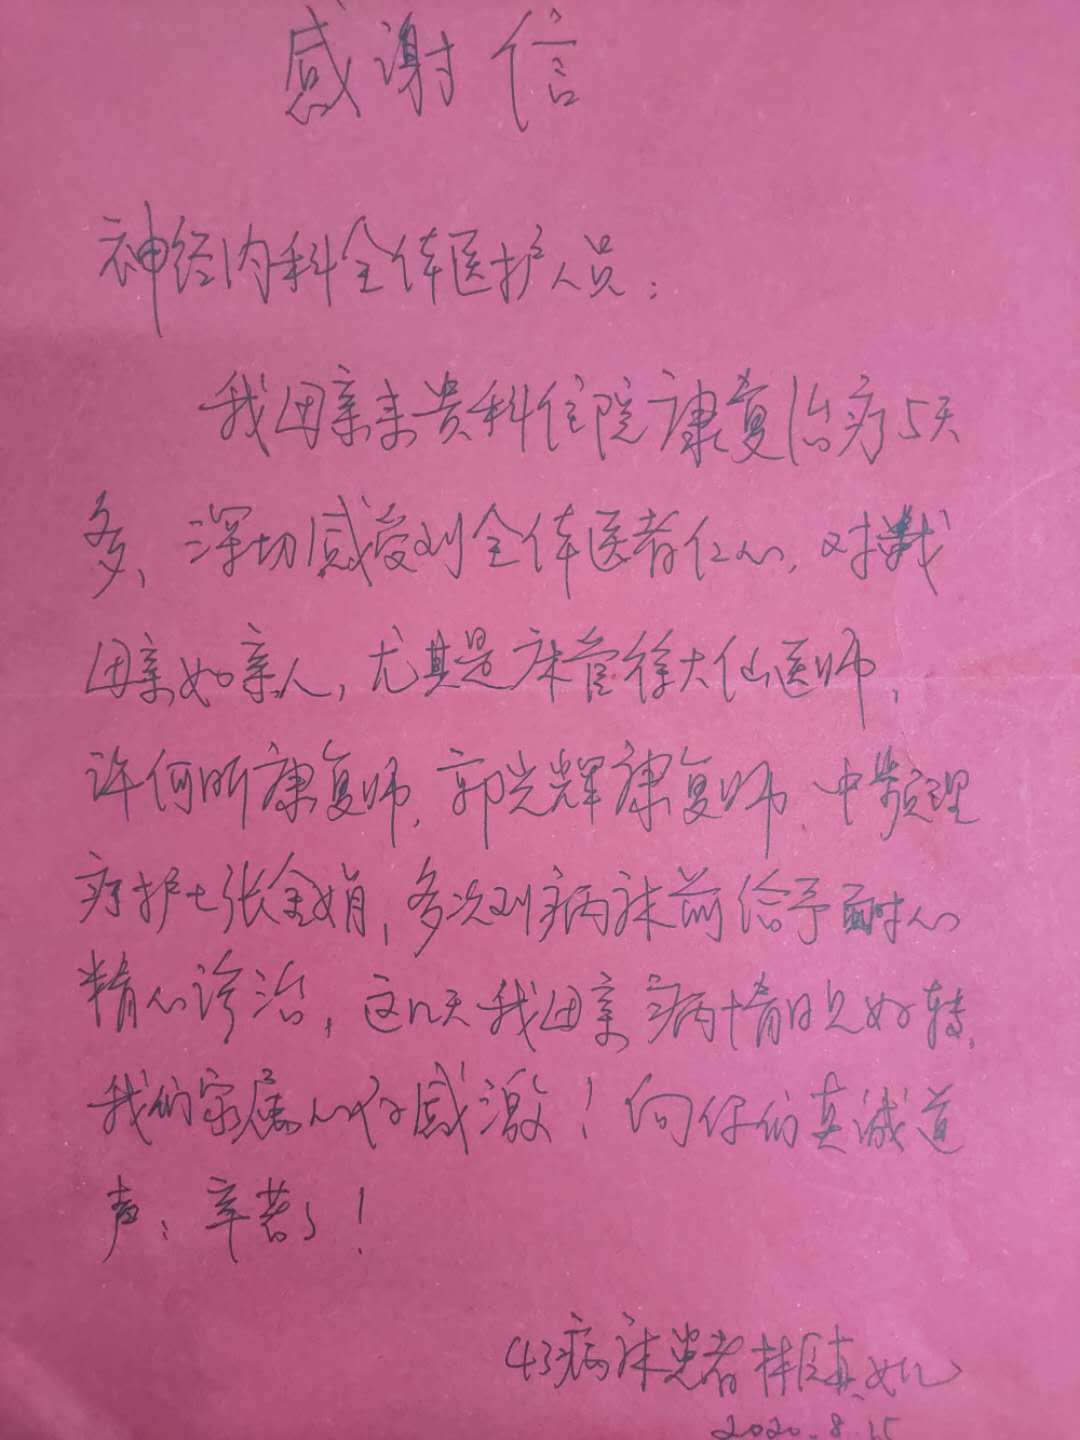 感谢信
神经内科全体医护人员：
我母亲来贵科住院康复治疗5天
多，深切感受到全体医者仁心，对我
母亲如亲人，尤其是床管徐大仙医师，
许何昕康复师，郭光辉康复师，中频理
疗护士张金娟，多次到病床前给予耐心
精心诊治，这几天我母亲病情日见好转，
我们家属心存感激！向你们真诚道
声：辛苦了！
43病床患者林
2020.8.15